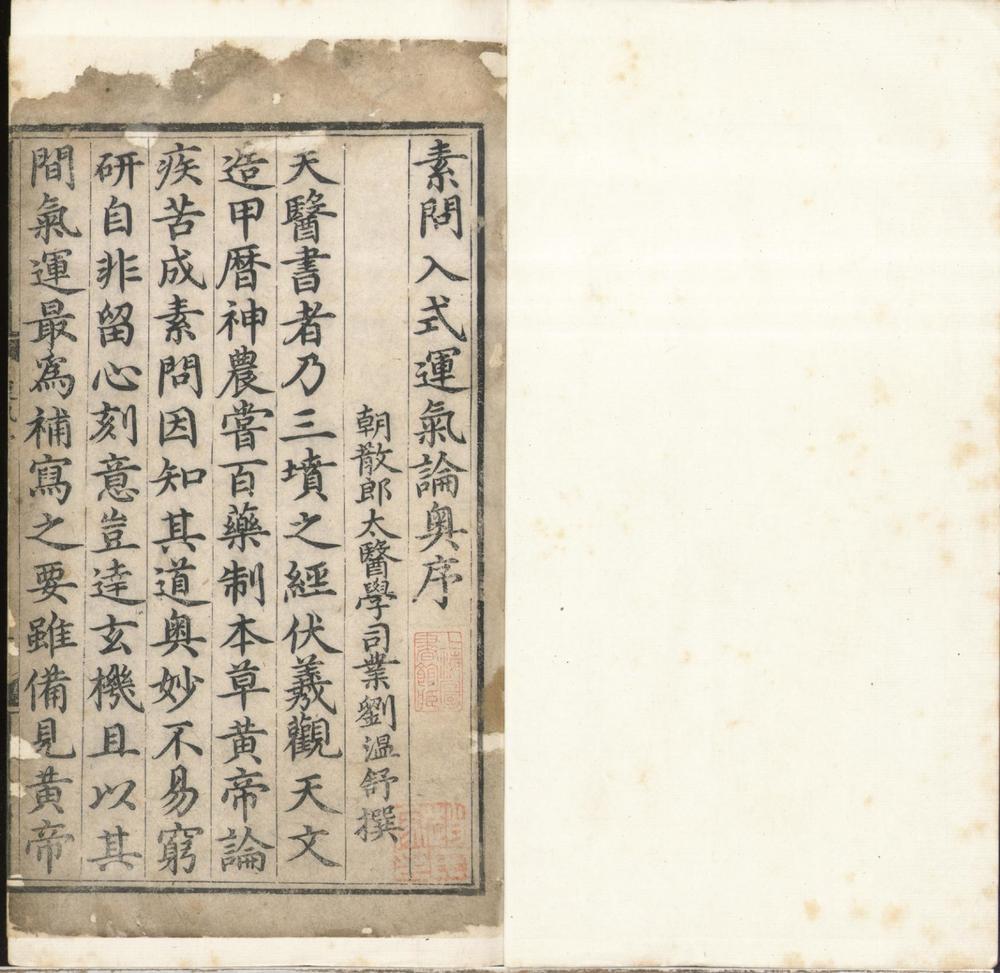 素問入式運氣論奥序
朝散郎太醫學司業劉溫舒撰
天醫書者乃三墳之經伏羲觀天文
造甲曆神農嘗百藥制本草黄帝論
疾苦成素問因知其道奥妙不易窮
研自非留心刻意豈達玄機且以其
間氣運最為補寫之要雖備見黄帝
上海圖
書館藏